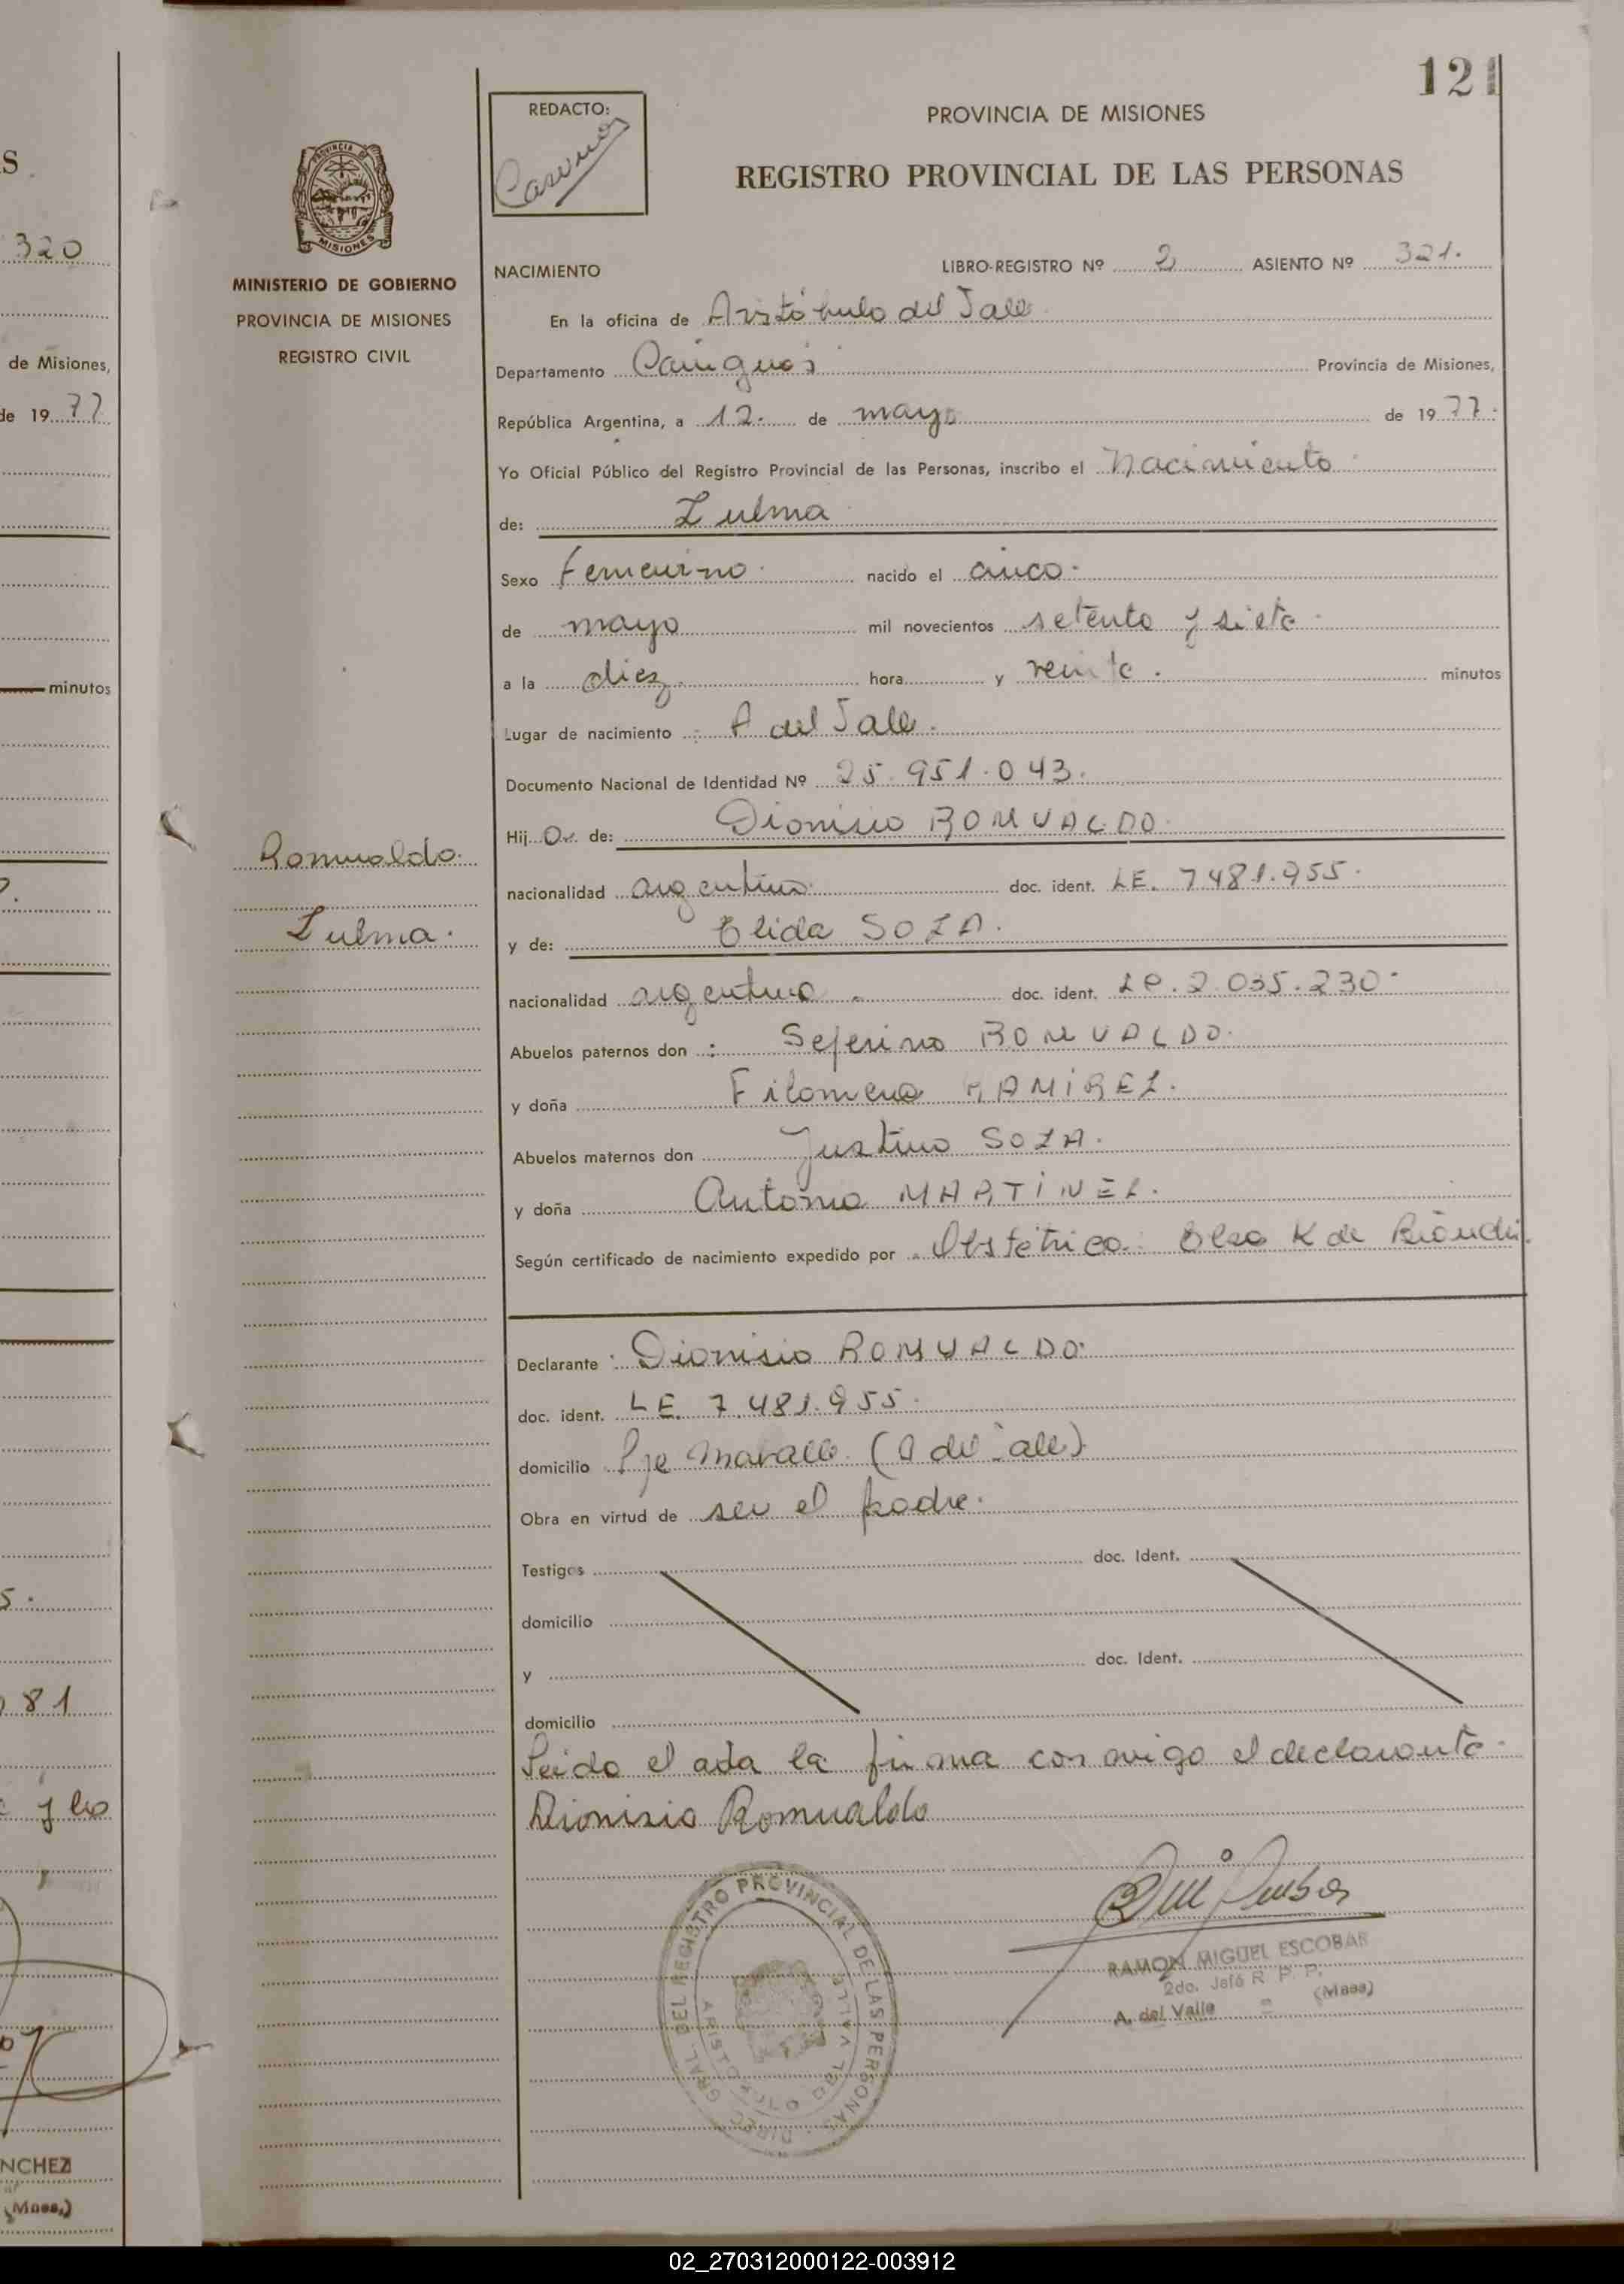 121
REDACTO:
PROVINCIA DE MISIONES
REGISTRO PROVINCIAL DE LAS PERSONAS
PROVINCIA DE
MISIONES
MINISTERIO DE GOBIERNO
PROVINCIA DE MISIONES
REGISTRO CIVIL
NACIMIENTO
LIBRO-REGISTRO Nº 2 ASIENTO Nº 321.
En la oficina de Aristóbulo del Valle
Departamento Cainguás Provincia de Misiones,
República Argentina, a 12. de mayo de 1977.
Yo Oficial Público del Registro Provincial de las Personas, inscribo el Nacimiento
de: Zulma
Sexo femenino. nacido el cinco.
de mayo mil novecientos setenta y siete.
a la diez hora y veinte. minutos
Lugar de nacimiento: A del Valle.
Documento Nacional de Identidad Nº 25.951.043.
Hija de: Dionisio ROMUALDO.
Romualdo.
Zulma.
nacionalidad argentino. doc. ident. LE. 7481.955.
y de: Elida SOZA.
nacionalidad argentina. doc. ident. LC. 2.035.230.
Abuelos paternos don: Seferino ROMUALDO.
y doña Filomena RAMÍREZ.
Abuelos maternos don Justino SOZA.
y doña Antonia MARTÍNEZ.
Según certificado de nacimiento expedido por Obstétrica. Elsa K de
Declarante: Dionisio ROMUALDO.
doc. ident. LE. 7.481.955.
domicilio Pje (A del Valle).
Obra en virtud de ser el padre.
Testigos doc. Ident.
domicilio
y doc. Ident.
domicilio
Leida el acta la firma conmigo el declarante.
Dionisio Romualdo
DIREC. GRAL. DEL REGISTRO PROVINCIAL DE LAS PERSONAS
ARISTOBULO DEL VALLE
RAMON MIGUEL ESCOBAR
2do. Jefe R. P. P.
A. del Valle = (Mnes)
S
320
de Misiones,
de 1977
minutos
5.
81
y los
NCHEZ
(Mnes.)
02_270312000122-003912